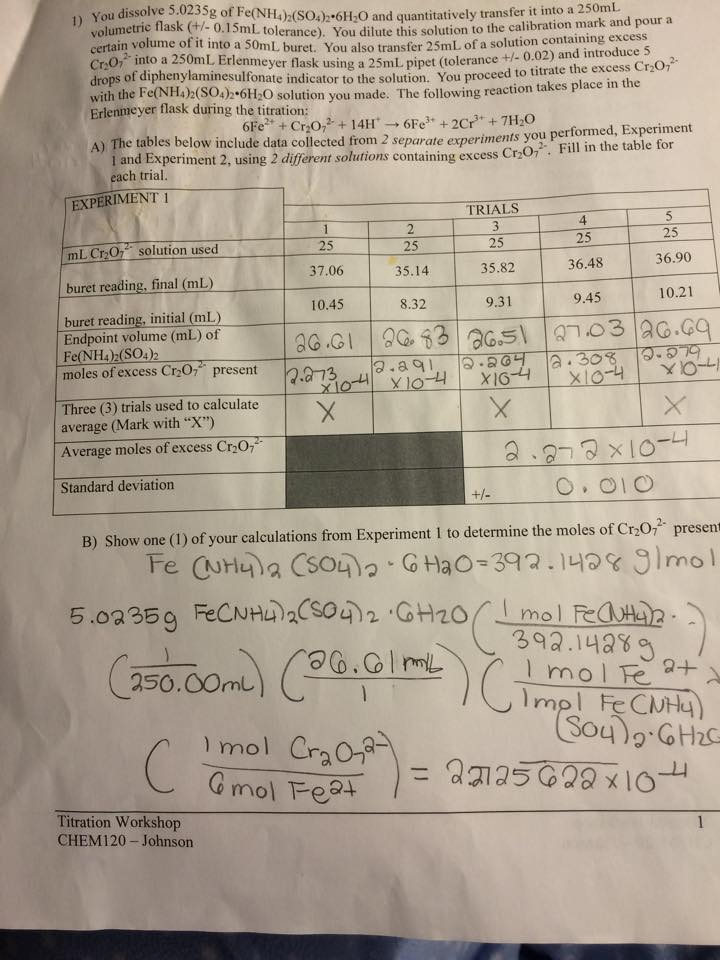 1) You dissolve 5.0235g of Fe(NH₄)₂(SO₄)₂•6H₂O and quantitatively transfer it into a 250mL
volumetric flask (+/- 0.15mL tolerance). You dilute this solution to the calibration mark and pour a
certain volume of it into a 50mL buret. You also transfer 25mL of a solution containing excess
Cr₂O₇²⁻ into a 250mL Erlenmeyer flask using a 25mL pipet (tolerance +/- 0.02) and introduce 5
drops of diphenylaminesulfonate indicator to the solution. You proceed to titrate the excess Cr₂O₇²⁻
with the Fe(NH₄)₂(SO₄)₂•6H₂O solution you made. The following reaction takes place in the
Erlenmeyer flask during the titration:
6Fe²⁺ + Cr₂O₇²⁻ + 14H⁺ → 6Fe³⁺ + 2Cr³⁺ + 7H₂O
A) The tables below include data collected from 2 separate experiments you performed, Experiment
1 and Experiment 2, using 2 different solutions containing excess Cr₂O₇²⁻. Fill in the table for
each trial.
EXPERIMENT 1
TRIALS
1 2 3 4 5
mL Cr₂O₇²⁻ solution used 25 25 25 25 25
buret reading, final (mL) 37.06 35.14 35.82 36.48 36.90
buret reading, initial (mL) 10.45 8.32 9.31 9.45 10.21
Endpoint volume (mL) of
Fe(NH₄)₂(SO₄)₂ 26.61 26.83 26.51 27.03 26.69
moles of excess Cr₂O₇²⁻ present 2.273 x10-4 2.291 x10-4 2.264 x10-4 2.308 x10-4 2.279 x10-4
Three (3) trials used to calculate
average (Mark with “X”) X X X
Average moles of excess Cr₂O₇²⁻ 2.272 x10-4
Standard deviation +/- 0.010
B) Show one (1) of your calculations from Experiment 1 to determine the moles of Cr₂O₇²⁻ present
Fe (NH4)2 (SO4)2 · 6 H2O = 392.1428 g/mol
5.0235g Fe(NH4)2(SO4)2 · 6H2O ( 1 mol Fe(NH4)2 · )
392.1428g
( 1 / 250.00mL ) ( 26.61 mL / 1 ) ( 1 mol Fe 2+
1mol Fe (NH4)
(SO4)2·6H2O
( 1 mol Cr2O7 2- / 6 mol Fe2+ ) = 2.2725622 x10-4
Titration Workshop 1
CHEM120 – Johnson